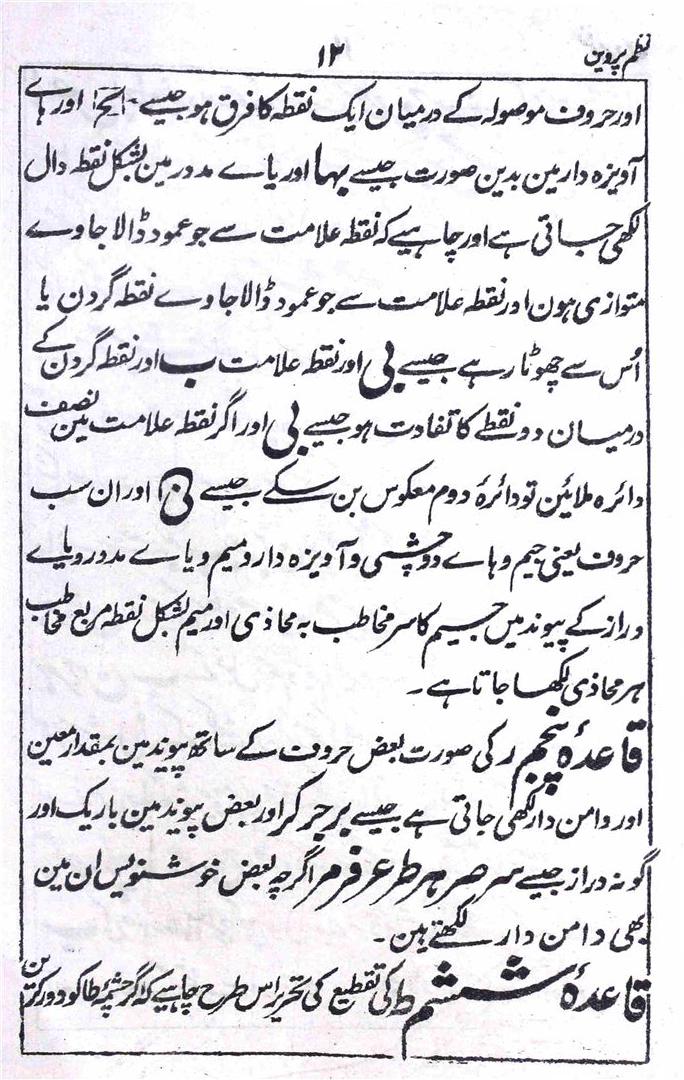 نظم پروین
۱۲
اور حروف موصولہ کے درمیان ایک نقطہ کا فرق ہو جیسے اور ہاے
آویزہ دار مین بدین صورت جیسے بہا اور یاے مدور مین بشکل نقطہ دال
لکھی جاتی ہے اور چاہیے کہ نقطہ علامت سے جو عمود ڈالا جاوے
متوازی ہون اور نقطہ علامت سے جو عمود ڈالا جاوے نقطہ گردن یا
اُس سے چھوٹا رہے جیسے بی اور نقطہ علامت ب اور نقطہ گردن کے
درمیان دو نقطے کا تفاوت ہو جیسے بی اور اگر نقطہ علامت مین نصف
دائرہ ملائین تو دائرۂ دوم معکوس بن سکے جیسے اور ان سب
حروف یعنی جیم و ہاے دوچشمی و آویزہ دار و میم و یاے مدور و یاے
دراز کے پیوند میں جسیم کا سر مخاطب بہ محاذی اور میم بشکل نقطہ مربع مخاطب
ہر محاذی لکھا جاتا ہے۔
قاعدۂ پنجم ر کی صورت بعض حروف کے ساتھ پیوند مین بمقدار معین
اور دامن دار لکھی جاتی ہے جیسے بر جر کر اور بعض پیوند مین باریک اور
گونہ دراز جیسے سر صر ہر طر عر فر مر اگرچہ بعض خوشنویس ان مین
بھی دامن دار لکھتے ہین۔
قاعدۂ ششم ط کی تقطیع کی تحریر اس طرح چاہیے کہ اگر چشمۂ طا کو دور کرین